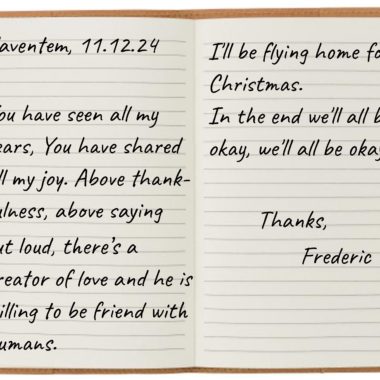 aventem, 11.12.24
ou have seen all my
ears, You have shared
ll my joy. Above thank-
ulness, above saying
ut loud, there's a
reator of love and he is
illing to be friend with
umans.
I'll be flying home fo
Christmas.
In the end we'll all b
okay, we'll all be okay
Thanks,
Frederic